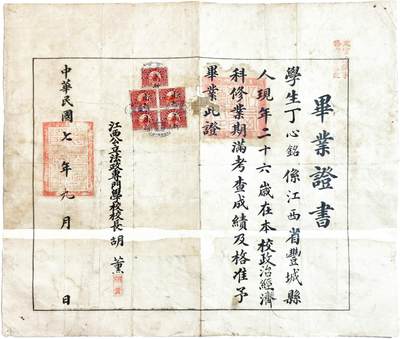 畢業證書
學生丁心銘係江西省豐城縣
人現年二十六歲在本校政治經濟
科修業期滿考查成績及格准予
畢業此證
江西公立法政專門學校校長胡薰
中華民國七年九月日